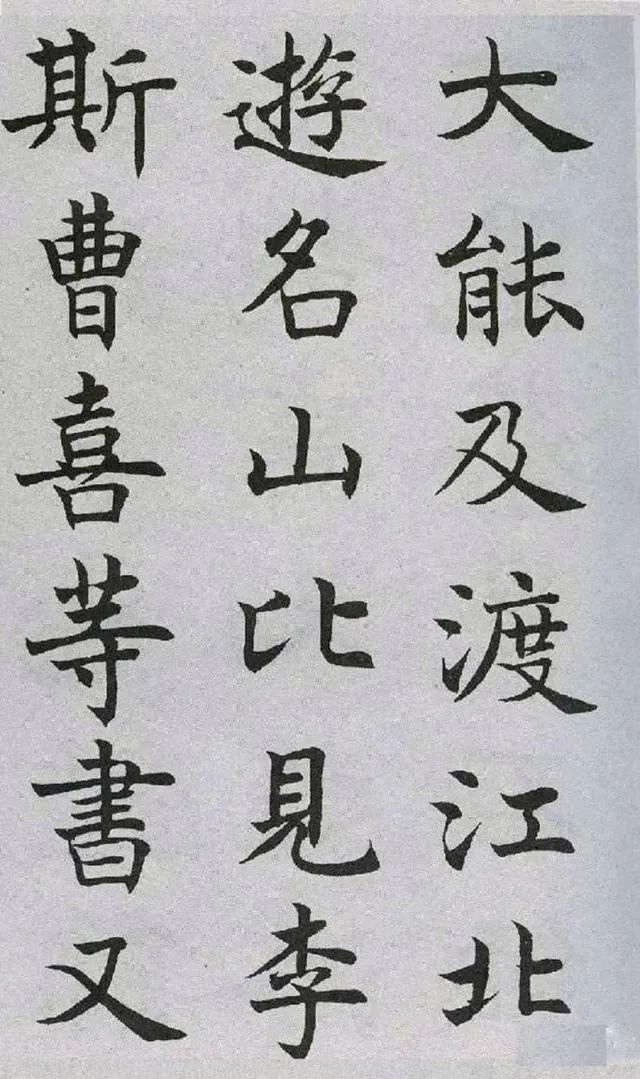 大能及渡江北
遊名山比見李
斯曹喜等書又